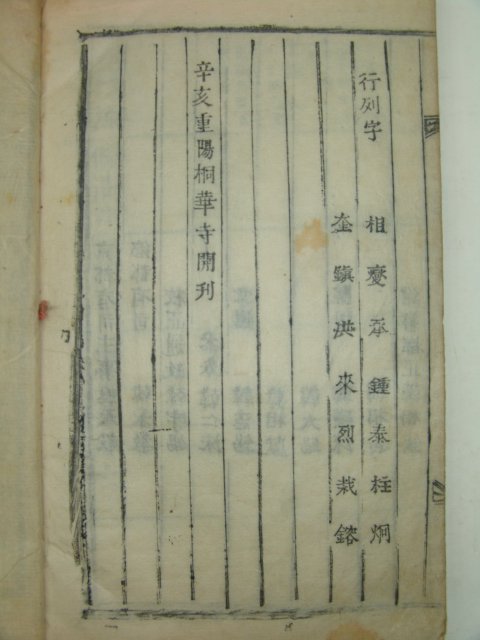 行列字
相燮承鍾泰柱炯
奎鎭洪來烈栽鎔
辛亥重陽桐華寺開刊